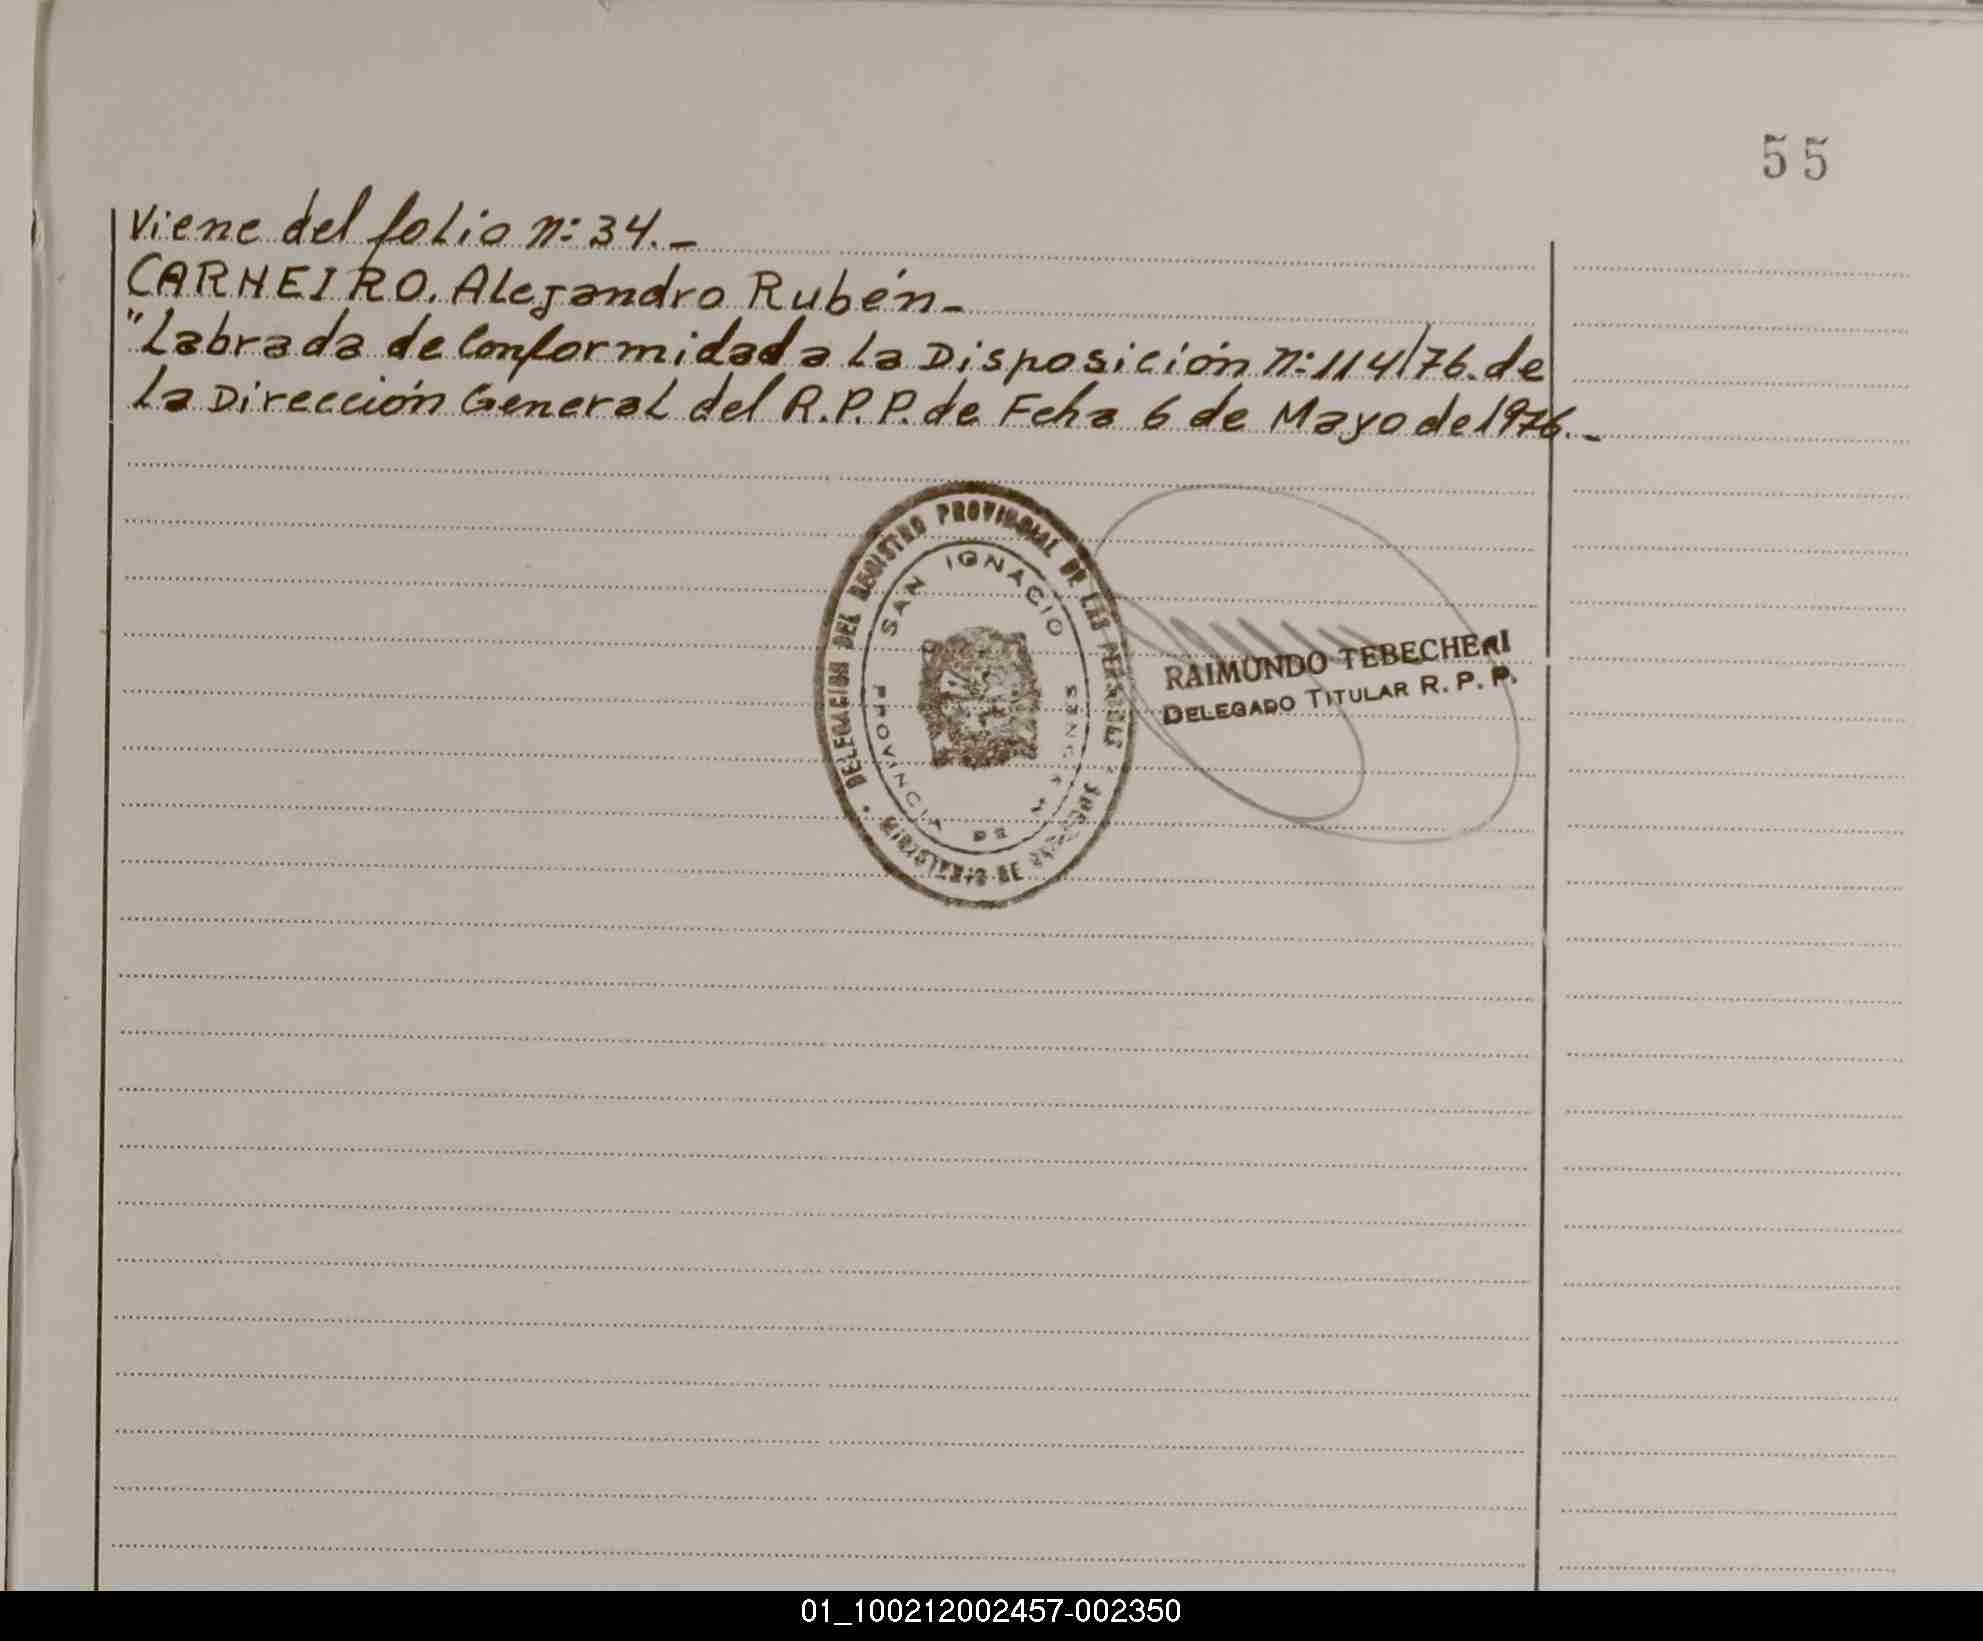 55
Viene del folio n: 34.-
CARNEIRO, Alejandro Rubén-
"Labrada de Conformidad a la Disposición n: 114/76. de
la Dirección General del R.P.P. de Feha 6 de Mayo de 1976.-
DELEGACION DEL REGISTRO PROVINCIAL DE LAS PERSONAS
SAN IGNACIO
PROVINCIA DE
RAIMUNDO TEBECHERI
DELEGADO TITULAR R. P. P.
01_100212002457-002350